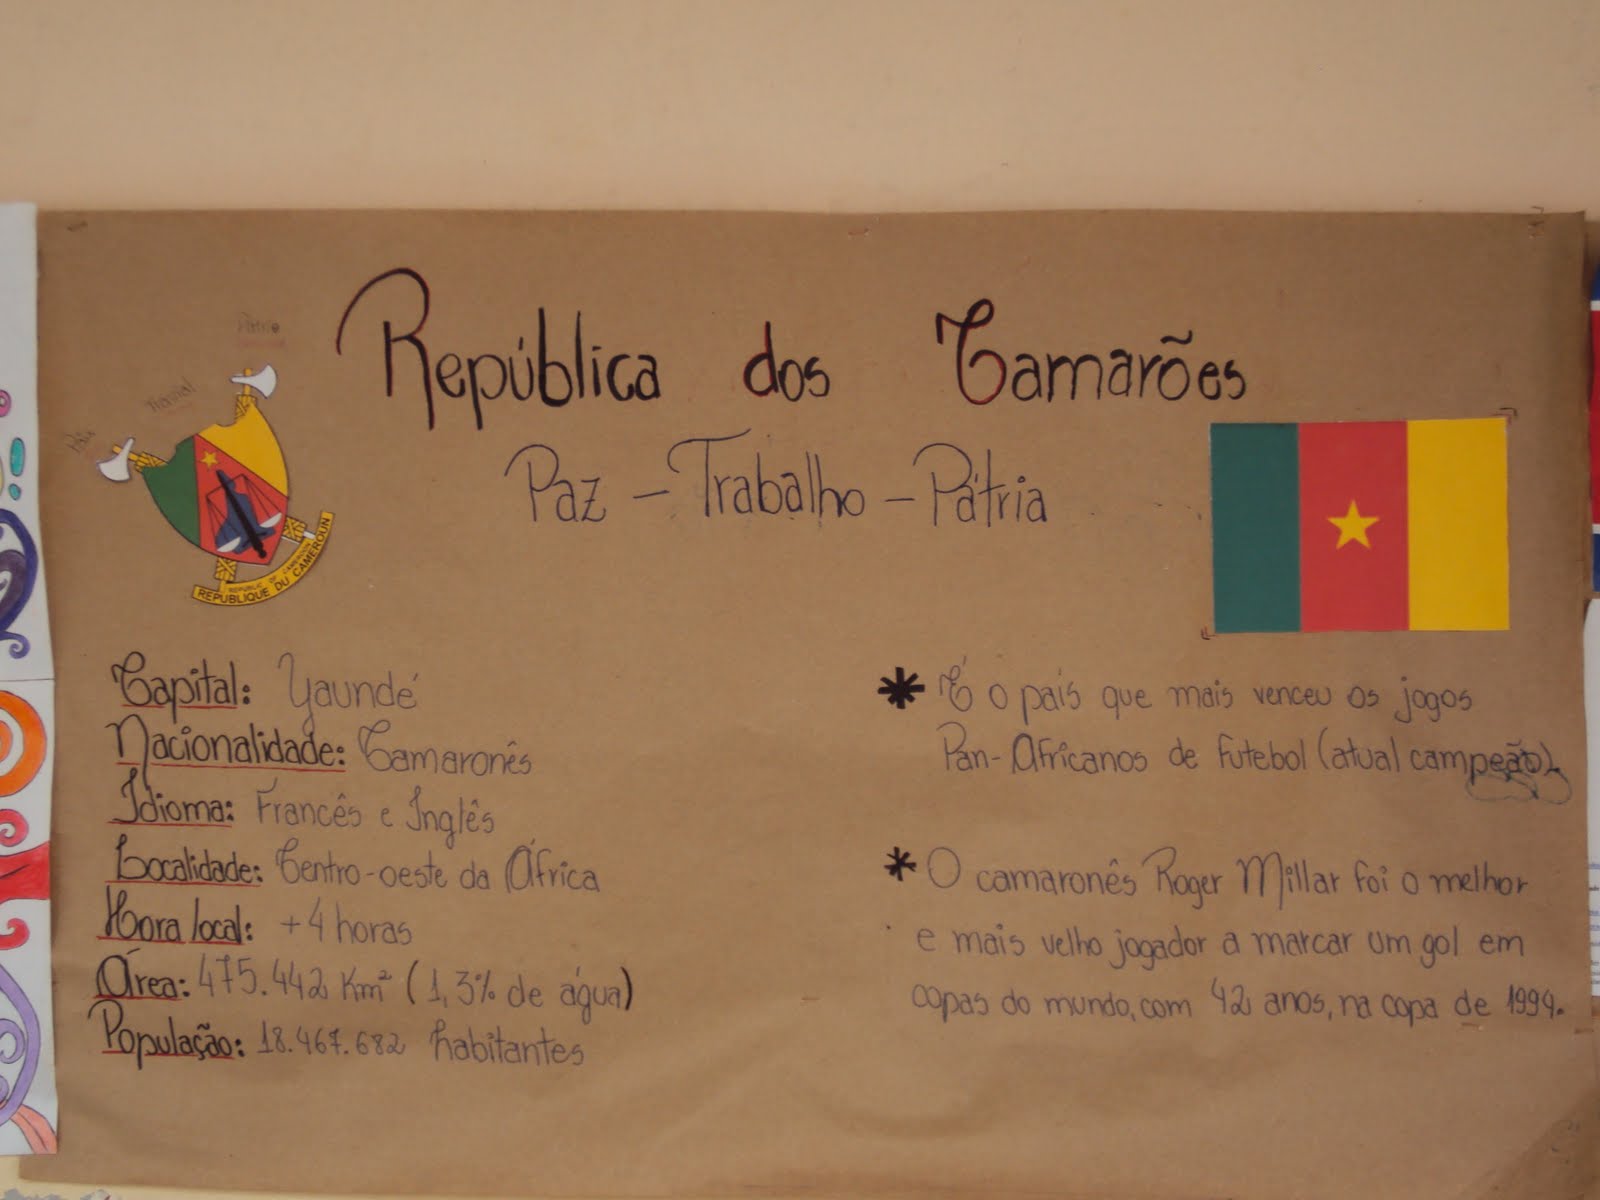 República dos Camarões
Paz - Trabalho - Pátria
Pátria
Paz
REPUBLIC OF CAMEROON
REPUBLIQUE DU CAMEROUN
Capital: Yaundé
Nacionalidade: Camaronês
Idioma: Francês e Inglês
Localidade: Centro-oeste da África
Hora local: +4 horas
Área: 475.442 Km² (1,3% de água)
População: 18.467.682 habitantes
* É o país que mais venceu os jogos
Pan-Africanos de futebol (atual campeão).
* O camaronês Roger Millar foi o melhor
e mais velho jogador a marcar um gol em
copas do mundo, com 42 anos, na copa de 1994.